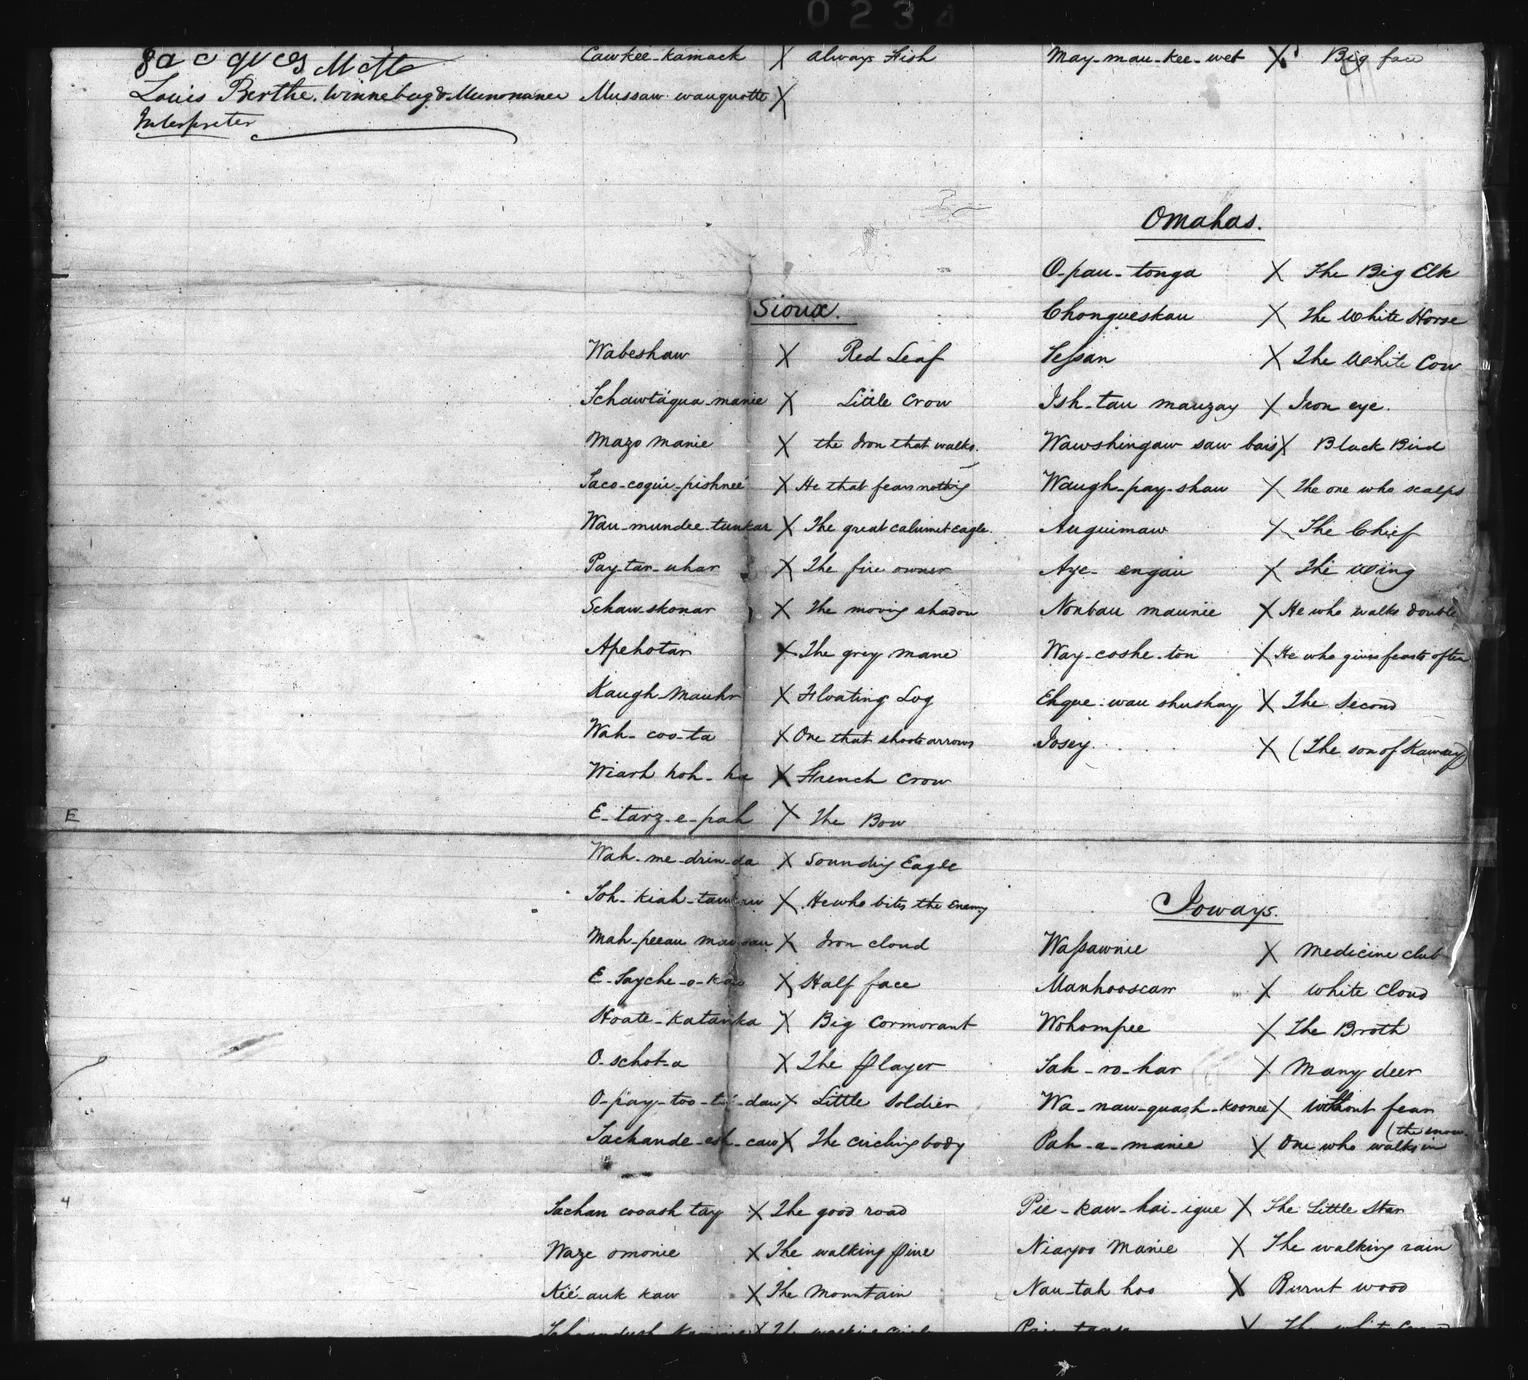 0234
Jacques Mette
Louis Berthe, Winnebago & Menominee
Interpreter
Cawkee-kamack X always Fish
Mussaw-wauquotte X
May-mau-kee-wet X Big face
Sioux.
Wabeshaw X Red Leaf
Tchawtàqua-manie X Little Crow
Mazo manie X the Iron that walks.
Taco-coqui-pishneé X He that fears nothing
Wau-mundee-tunkar X The great calumet eagle.
Pay-tar-whar X The fire owner
Schaw-skonar X The moving shadow
Apehotar X The grey mane
Kaugh-Mauhr X Floating Log
Wah-coo-ta X One that shoots arrows
Wiarh hoh-ha X French Crow
E-tarz-e-pah X The Bow
E
Wah-me-drin-da X Sounding Eagle
Toh-kiah-taw X He who bites the Enemy
Mah-peeau X Iron cloud
E-Tayche-o-kaw X Half face
Hoate-katanka X Big Cormorant
O-schot-a X The Player
O-pay-too-daw X Little Soldier
Tachande-esh-caw X The circling body
4
Tachan cooash tay X The good road
Waze omonie X The walking pine
Kié-auk kaw X The Mountain
Omahas.
O-pau-tonga X The Big Elk
Chonqueskau X The White Horse
Tessan X The White Cow
Ish-tau mauzay X Iron eye.
Wawshingaw saw bais X Black Bird
Waugh-pay-shaw X The one who scalps
Auguimaw X The Chief
Age-engau X The Wing
Nonbau maunie X He who walks double
Way-coshe-ton X He who gives feasts often
Ehque-wau shushay X The Second
Tosey X (The son of Kawsay)
Ioways.
Wassawnie X Medicine club
Manhooscaw X White Cloud
Wohompee X The Broth
Tah-ro-har X Many deer
Wa-naw-quash-koonee X Without fear
Pah-a-manie X One who walks in (the snow.
Pie-kaw-hai-igue X The Little Star
Niayoo Manie X The walking rain
Nau-tah hoo X Burnt wood